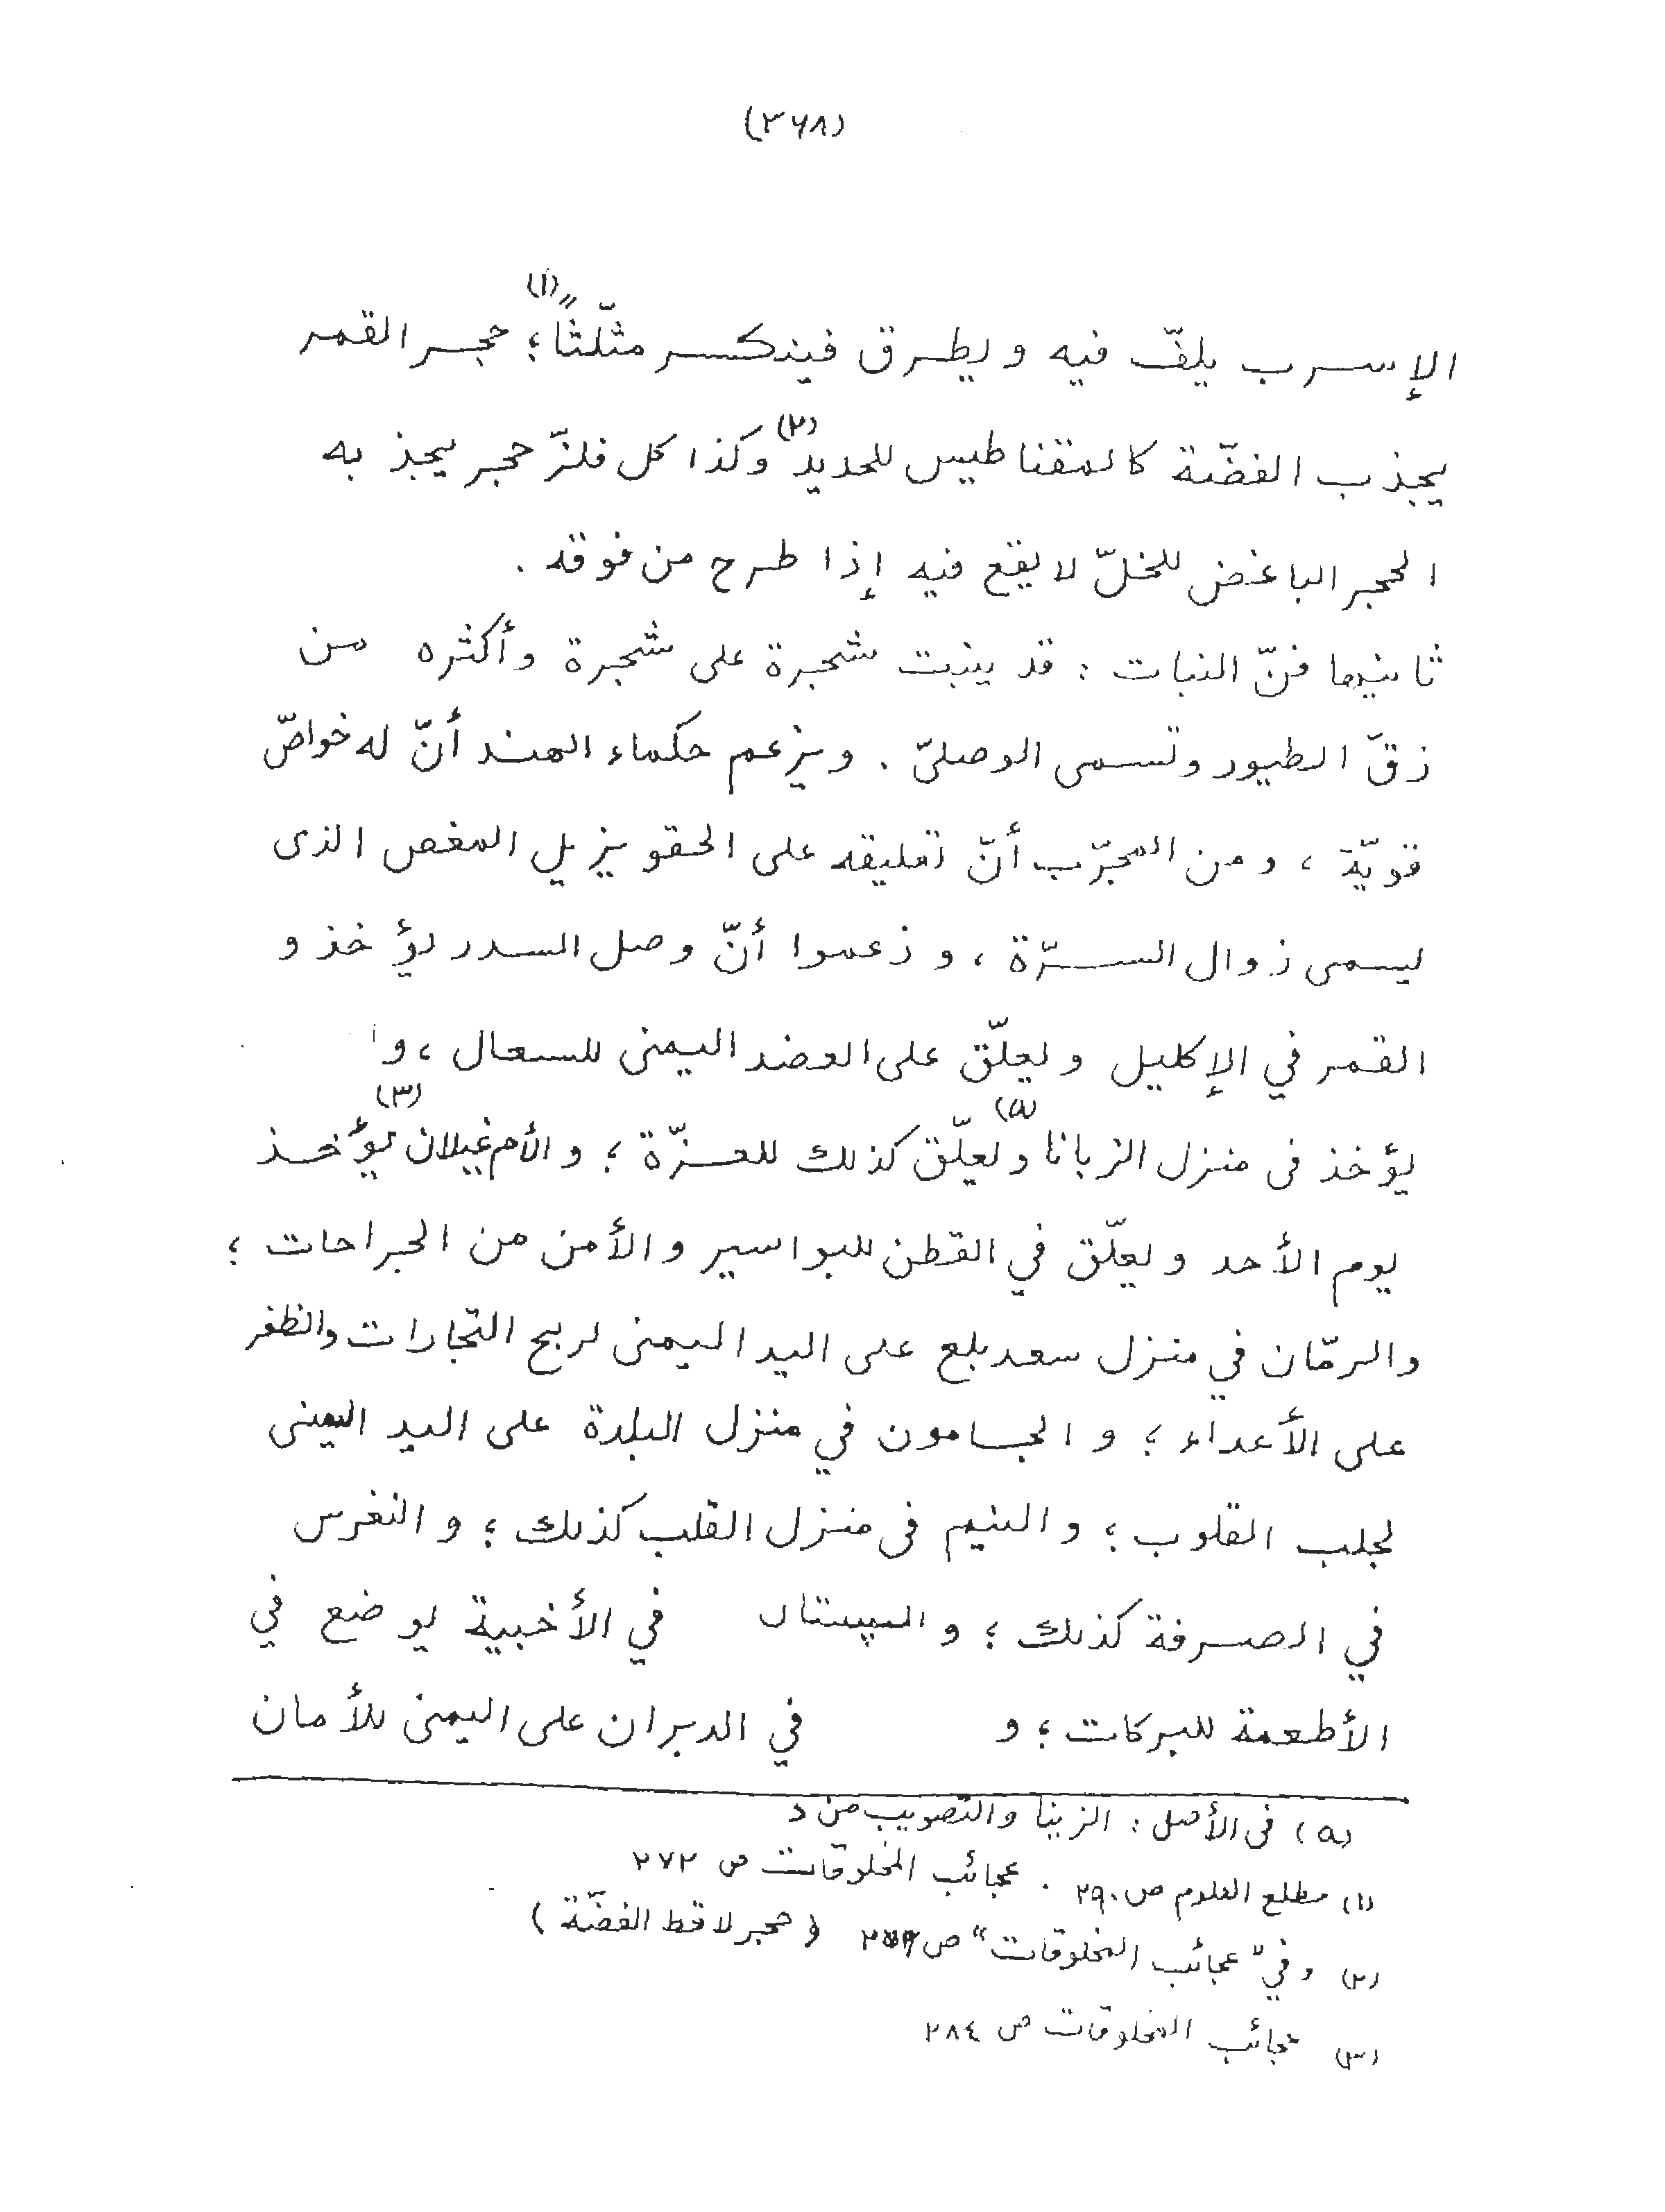 (٢٦٨)
الإسرب يلفّ فيه ويطرق فينكسر مثلّثًا"(١)؛ حجر القمر
يجذب الفضّة كالمقناطيس للحديد(٢) وكذا كل فلزّ حجر يجذبه
الحجر الباغض للخلّ لا يقع فيه إذا طرح من فوقه .
ثانيهما فنّ النبات : قد ينبت شجرة على شجرة وأكثره من
زقّ الطيور وتسمى الوصليّ . ويزعم حكماء الهند أنّ له خواصّ
قويّة ، ومن المجرّب أنّ تعليقه على الحقو يزيل المغص الذى
يسمى زوال السرّة ، وزعموا أنّ وصل السدر يؤخذ و
القمر في الإكليل ويعلّق على العضد اليمنى للسعال ، و
يؤخذ فى منزل الزبانا(۵) ويعلّق كذلك للعزّة ؛ والأم غيلان(٣) يؤخذ
يوم الأحد ويعلّق في القطن للبواسير والأمن من الجراحات ؛
والرمّان في منزل سعد بلع على اليد اليمنى لربح التجارات والظفر
على الأعداء ؛ و الجامون في منزل البلدة على اليد اليمنى
لجلب القلوب ؛ والنيم فى منزل القلب كذلك ؛ و النغرس
في الصرفة كذلك ؛ و السپستان في الأخبية يوضع في
الأطعمة للبركات ؛ و في الدبران على اليمنى للأمان
(۵) فى الأصل : الزبنا والتصويب من د
(١) مطلع العلوم ص ٢٩٠ . عجائب المخلوقات ص ٢٧٢
(٢) وفي "عجائب المخلوقات" ص (حجر لاقط الفضّة)
(٣) عجائب المخلوقات ص ٢٨٤